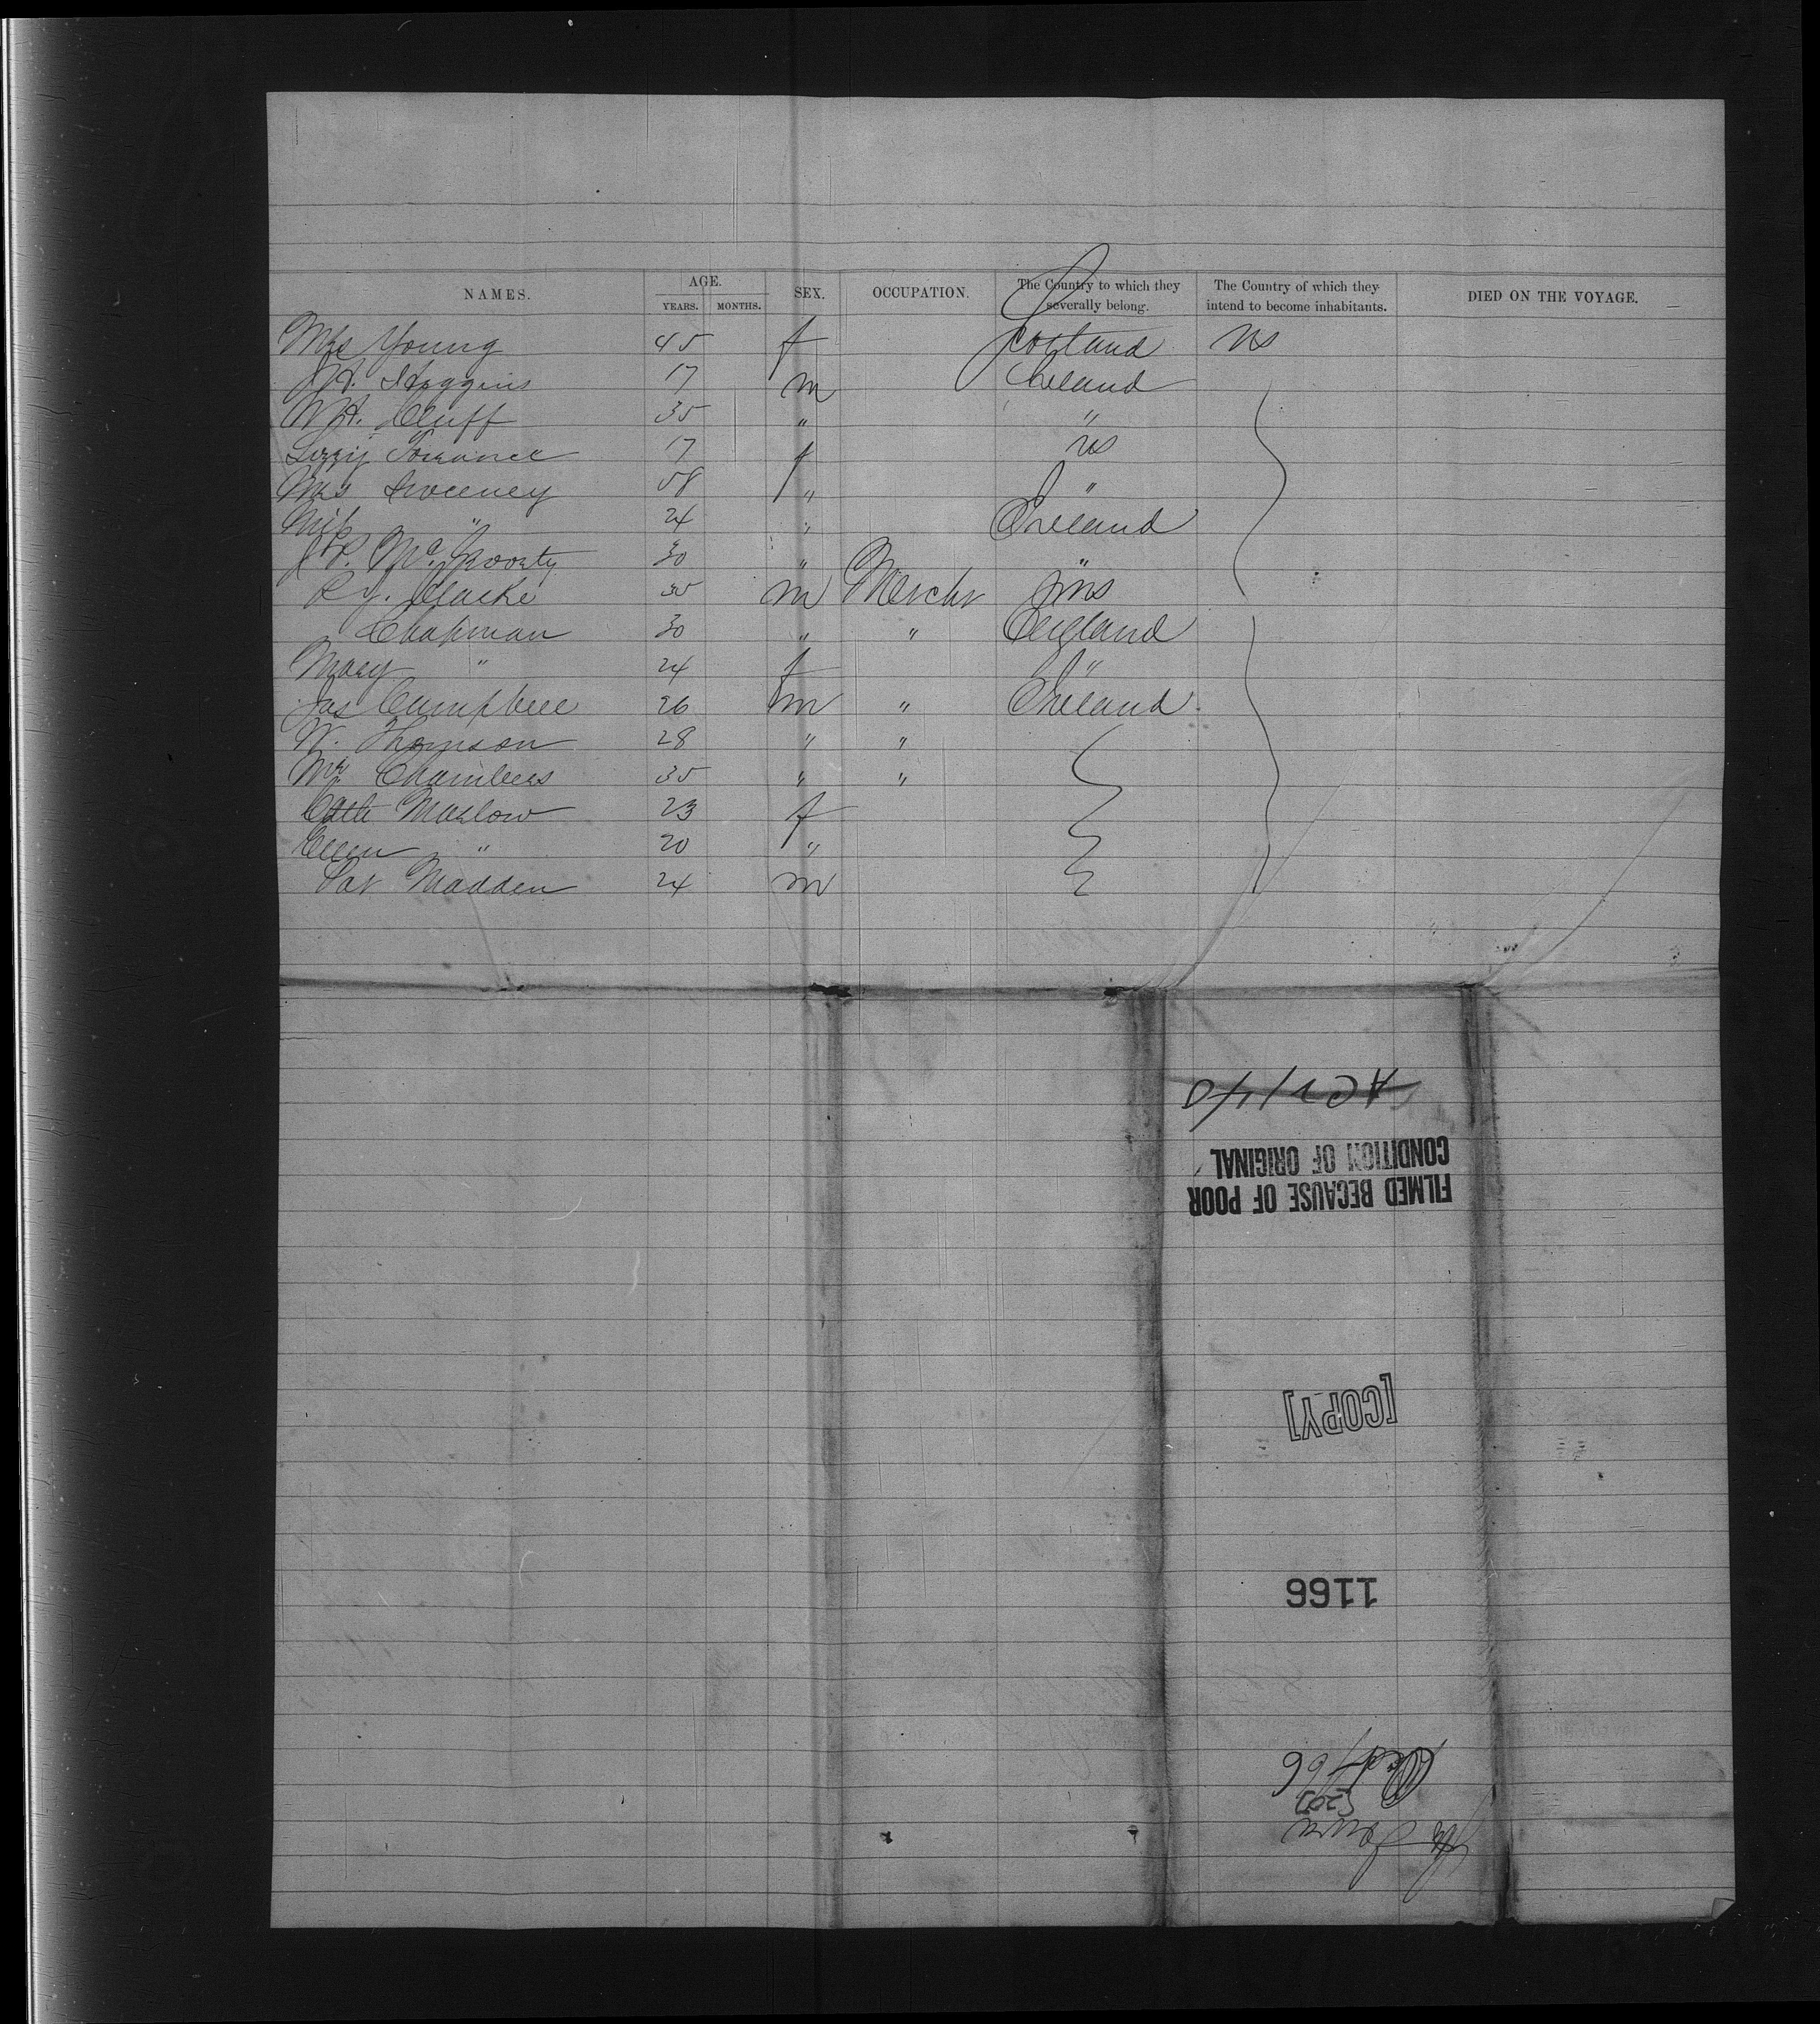 NAMES. AGE. YEARS. MONTHS. SEX. OCCUPATION. The Country to which they severally belong. The Country of which they intend to become inhabitants. DIED ON THE VOYAGE.
Mrs Young 45 f Scotland US
Higgins 17 m Ireland
W.H. Cluff 35 " "
Lizzy Torrance 17 f US
Mrs Sweeney 58 " "
Miss " 24 " Ireland
30 " "
R.J. Clarke 35 m Mercht US
Chapman 30 " " England
Mary " 24 f "
Jas Campbell 26 m " Ireland
W. Thomson 28 " "
Mr Chambers 35 " "
Cath Marlow 23 f
Ellen " 20 "
Pat Madden 24 m
FILMED BECAUSE OF POOR
CONDITION OF ORIGINAL
[COPY]
1166